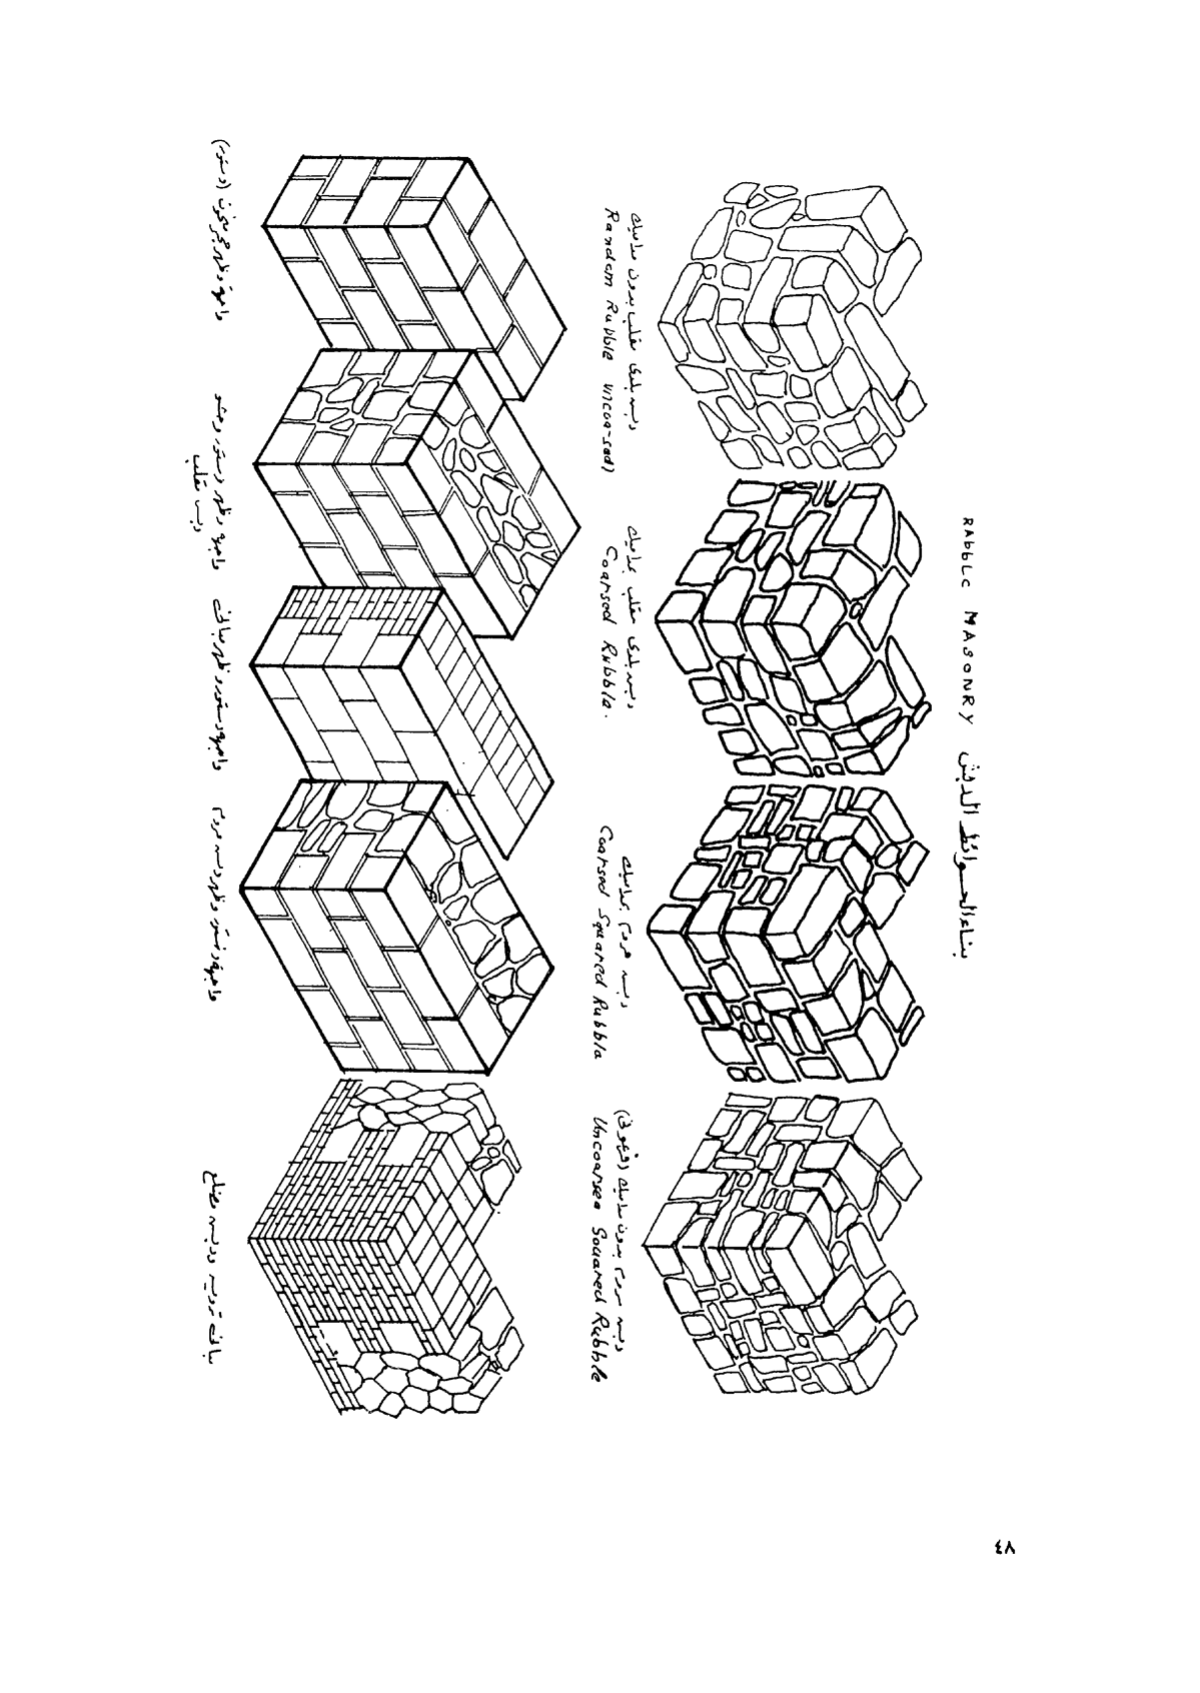 RAbbLC MASONRY بناء الحوائط الدبش
دبش بلدى مقلب بدون مداميك
Random Rubble uncoarsed)
دبش بلدى مقلب بمداميك
Coarsed Rubble.
دبش مروم بمداميك
Coarsed Squared Rubbla
دبش مروم بدون مداميك
Uncoarsea Souared Rubble
واجهة وظهر (دستور)
واجهة وظهر دستور وحشو
دبش مقلب
واجهة دستور وظهر مبانى
واجهة دستور وظهر دبش مروم
مبانى ودبش
٤٨